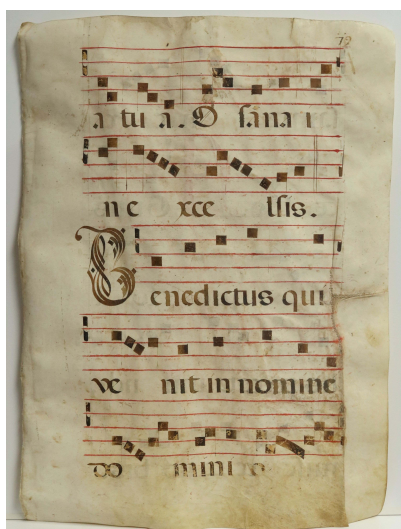 a tu a. O sana i
ne xce lsis.
Benedictus qui
ve nit in nomine
do mini